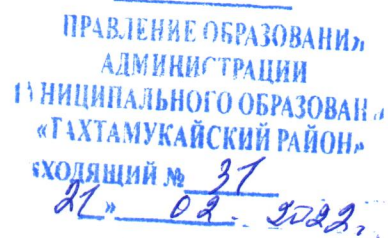 ПРАВЛЕНИЕ ОБРАЗОВАНИЯ
АДМИНИСТРАЦИИ
МУНИЦИПАЛЬНОГО ОБРАЗОВАН
«ТАХТАМУКАЙСКИЙ РАЙОН»
ХОДЯЩИЙ № 31
21 » 02. 2022г